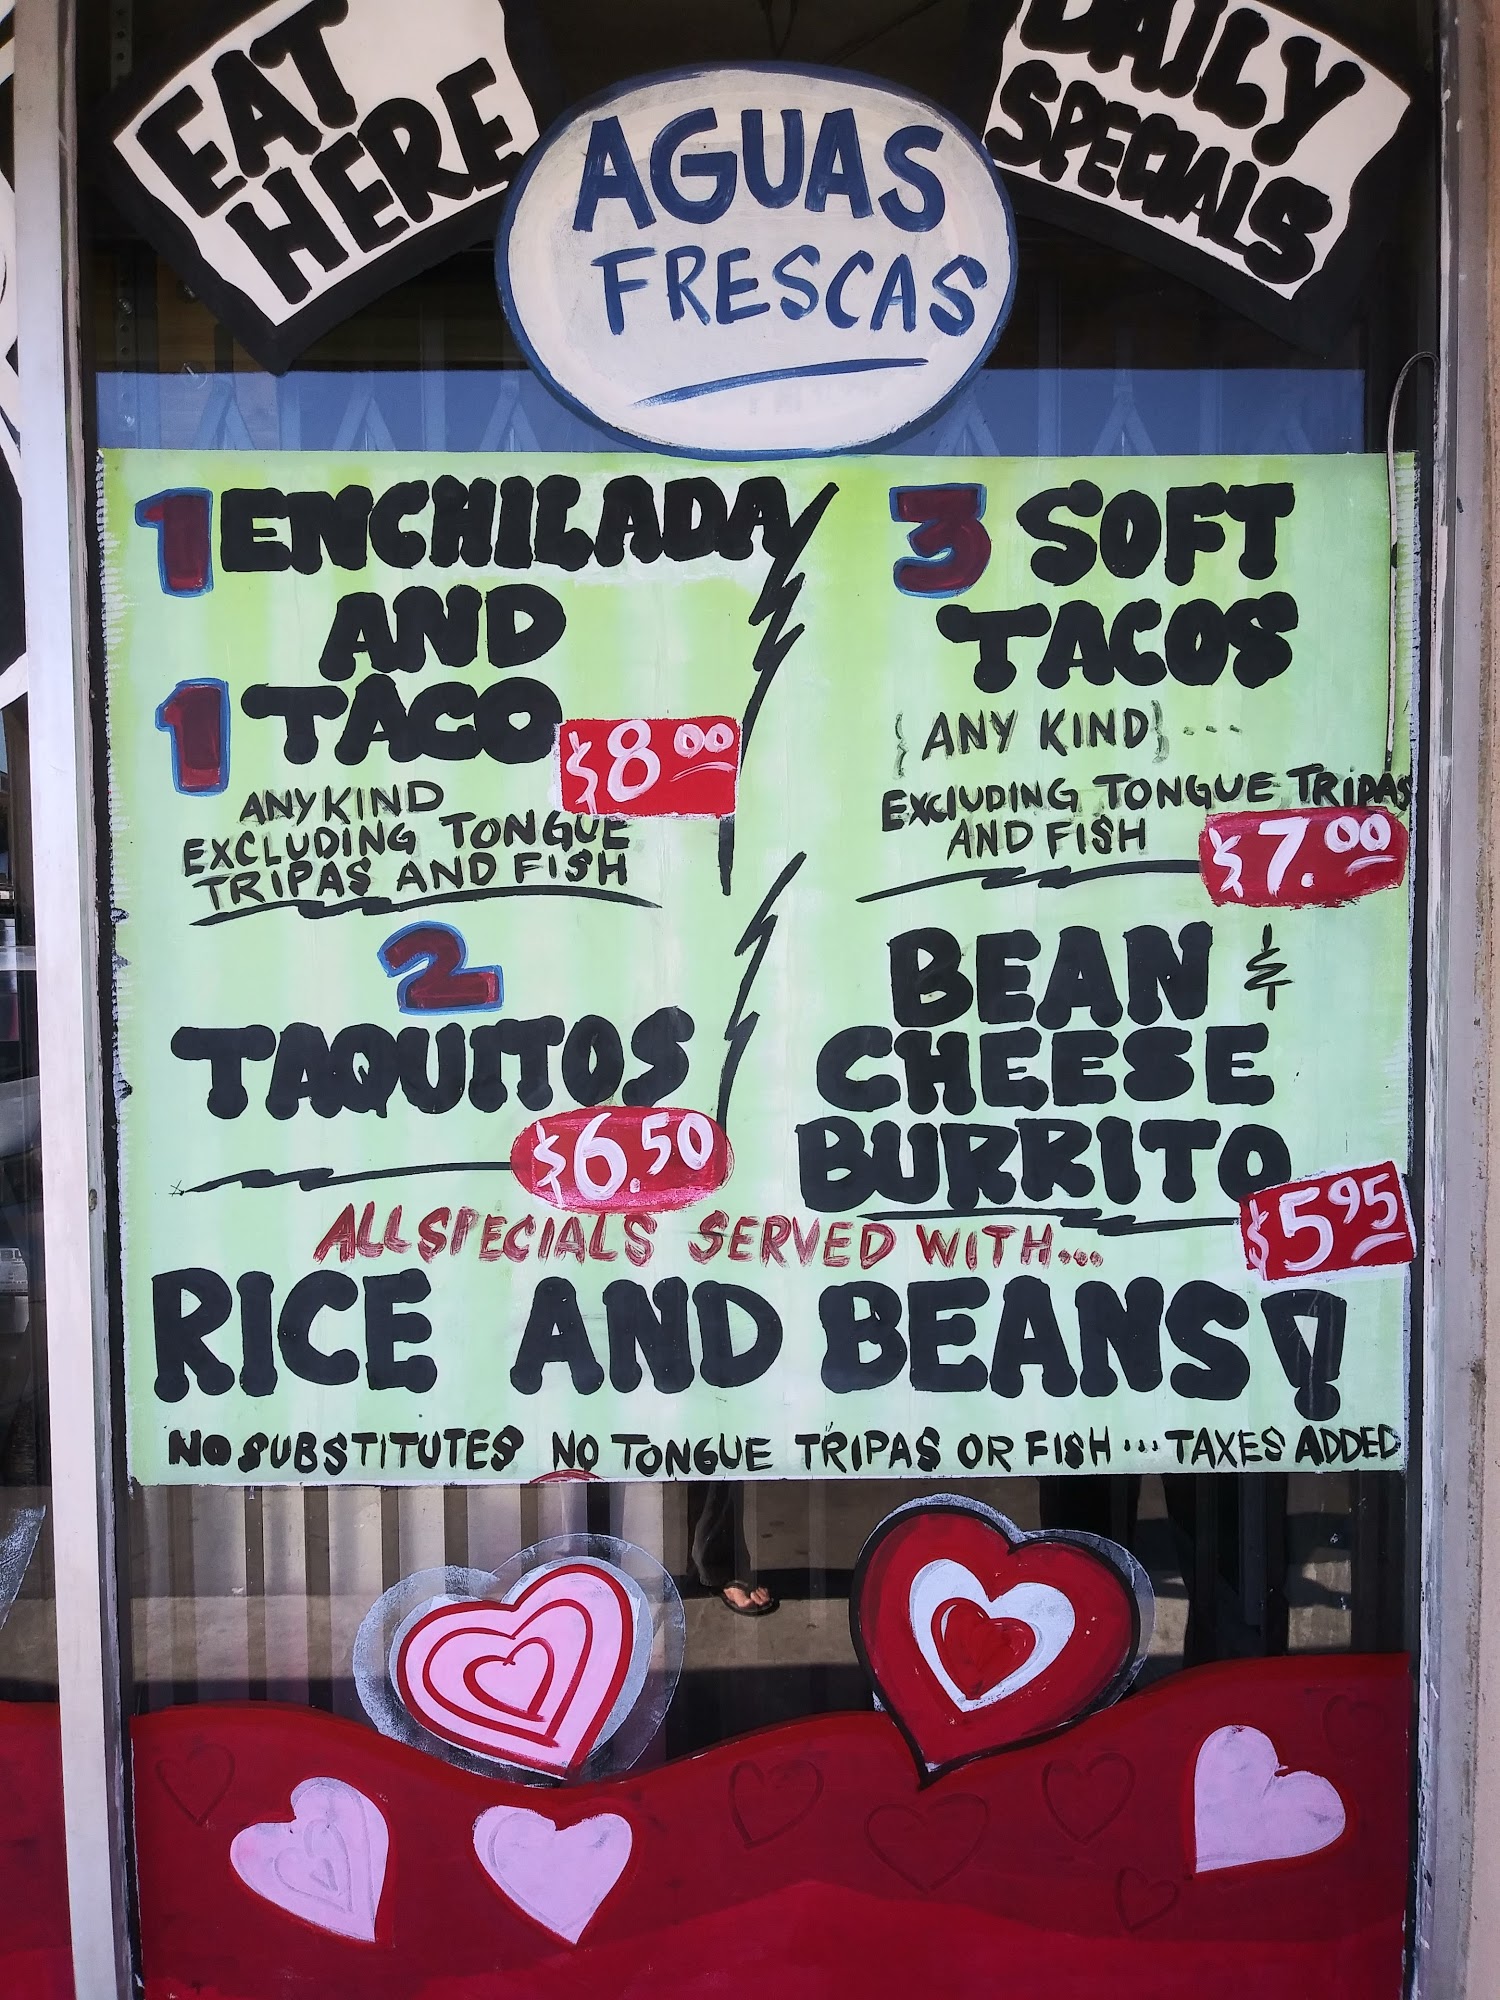 EAT
HERE
AGUAS
FRESCAS
DAILY
SPECIALS
1 ENCHILADA
AND
1 TACO
$8.00
ANY KIND
EXCLUDING TONGUE
TRIPAS AND FISH
3 SOFT
TACOS
{ANY KIND}...
EXCLUDING TONGUE TRIPAS
AND FISH
$7.00
2
TAQUITOS
$6.50
BEAN &
CHEESE
BURRITO
$5.95
ALL SPECIALS SERVED WITH...
RICE AND BEANS!
NO SUBSTITUTES NO TONGUE TRIPAS OR FISH... TAXES ADDED